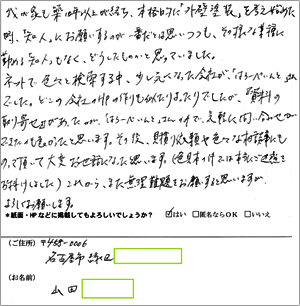 我が家も築10年以上が経ち、本格的に「外壁塗装」を考え始めた
時、知人にお願いするのが一番だとは思いつつも、その様な業種に
勤める知人もなく、どうしたものかと思っていました。
ネットで色々と検索する中、少し気になった会社が「はろーぺいんと」さん
でした。どこの会社のHPの作りも似たりよったりでしたが、「資料の
取り寄せ」があったのが「はろーぺいんと」さんの
と思います。その後、見積り依頼や色々な相談にも
のって頂いて大変お世話になったと思います。(色見本の件では本当にご迷惑を
お掛けしました)これから、また無理難題をお願いすると思いますが、
よろしくお願いします。
*紙面・HPなどに掲載してもよろしいでしょうか? ☑はい □匿名ならOK □いいえ
(ご住所) 〒458-0006
名古屋市緑区
(お名前)
山田